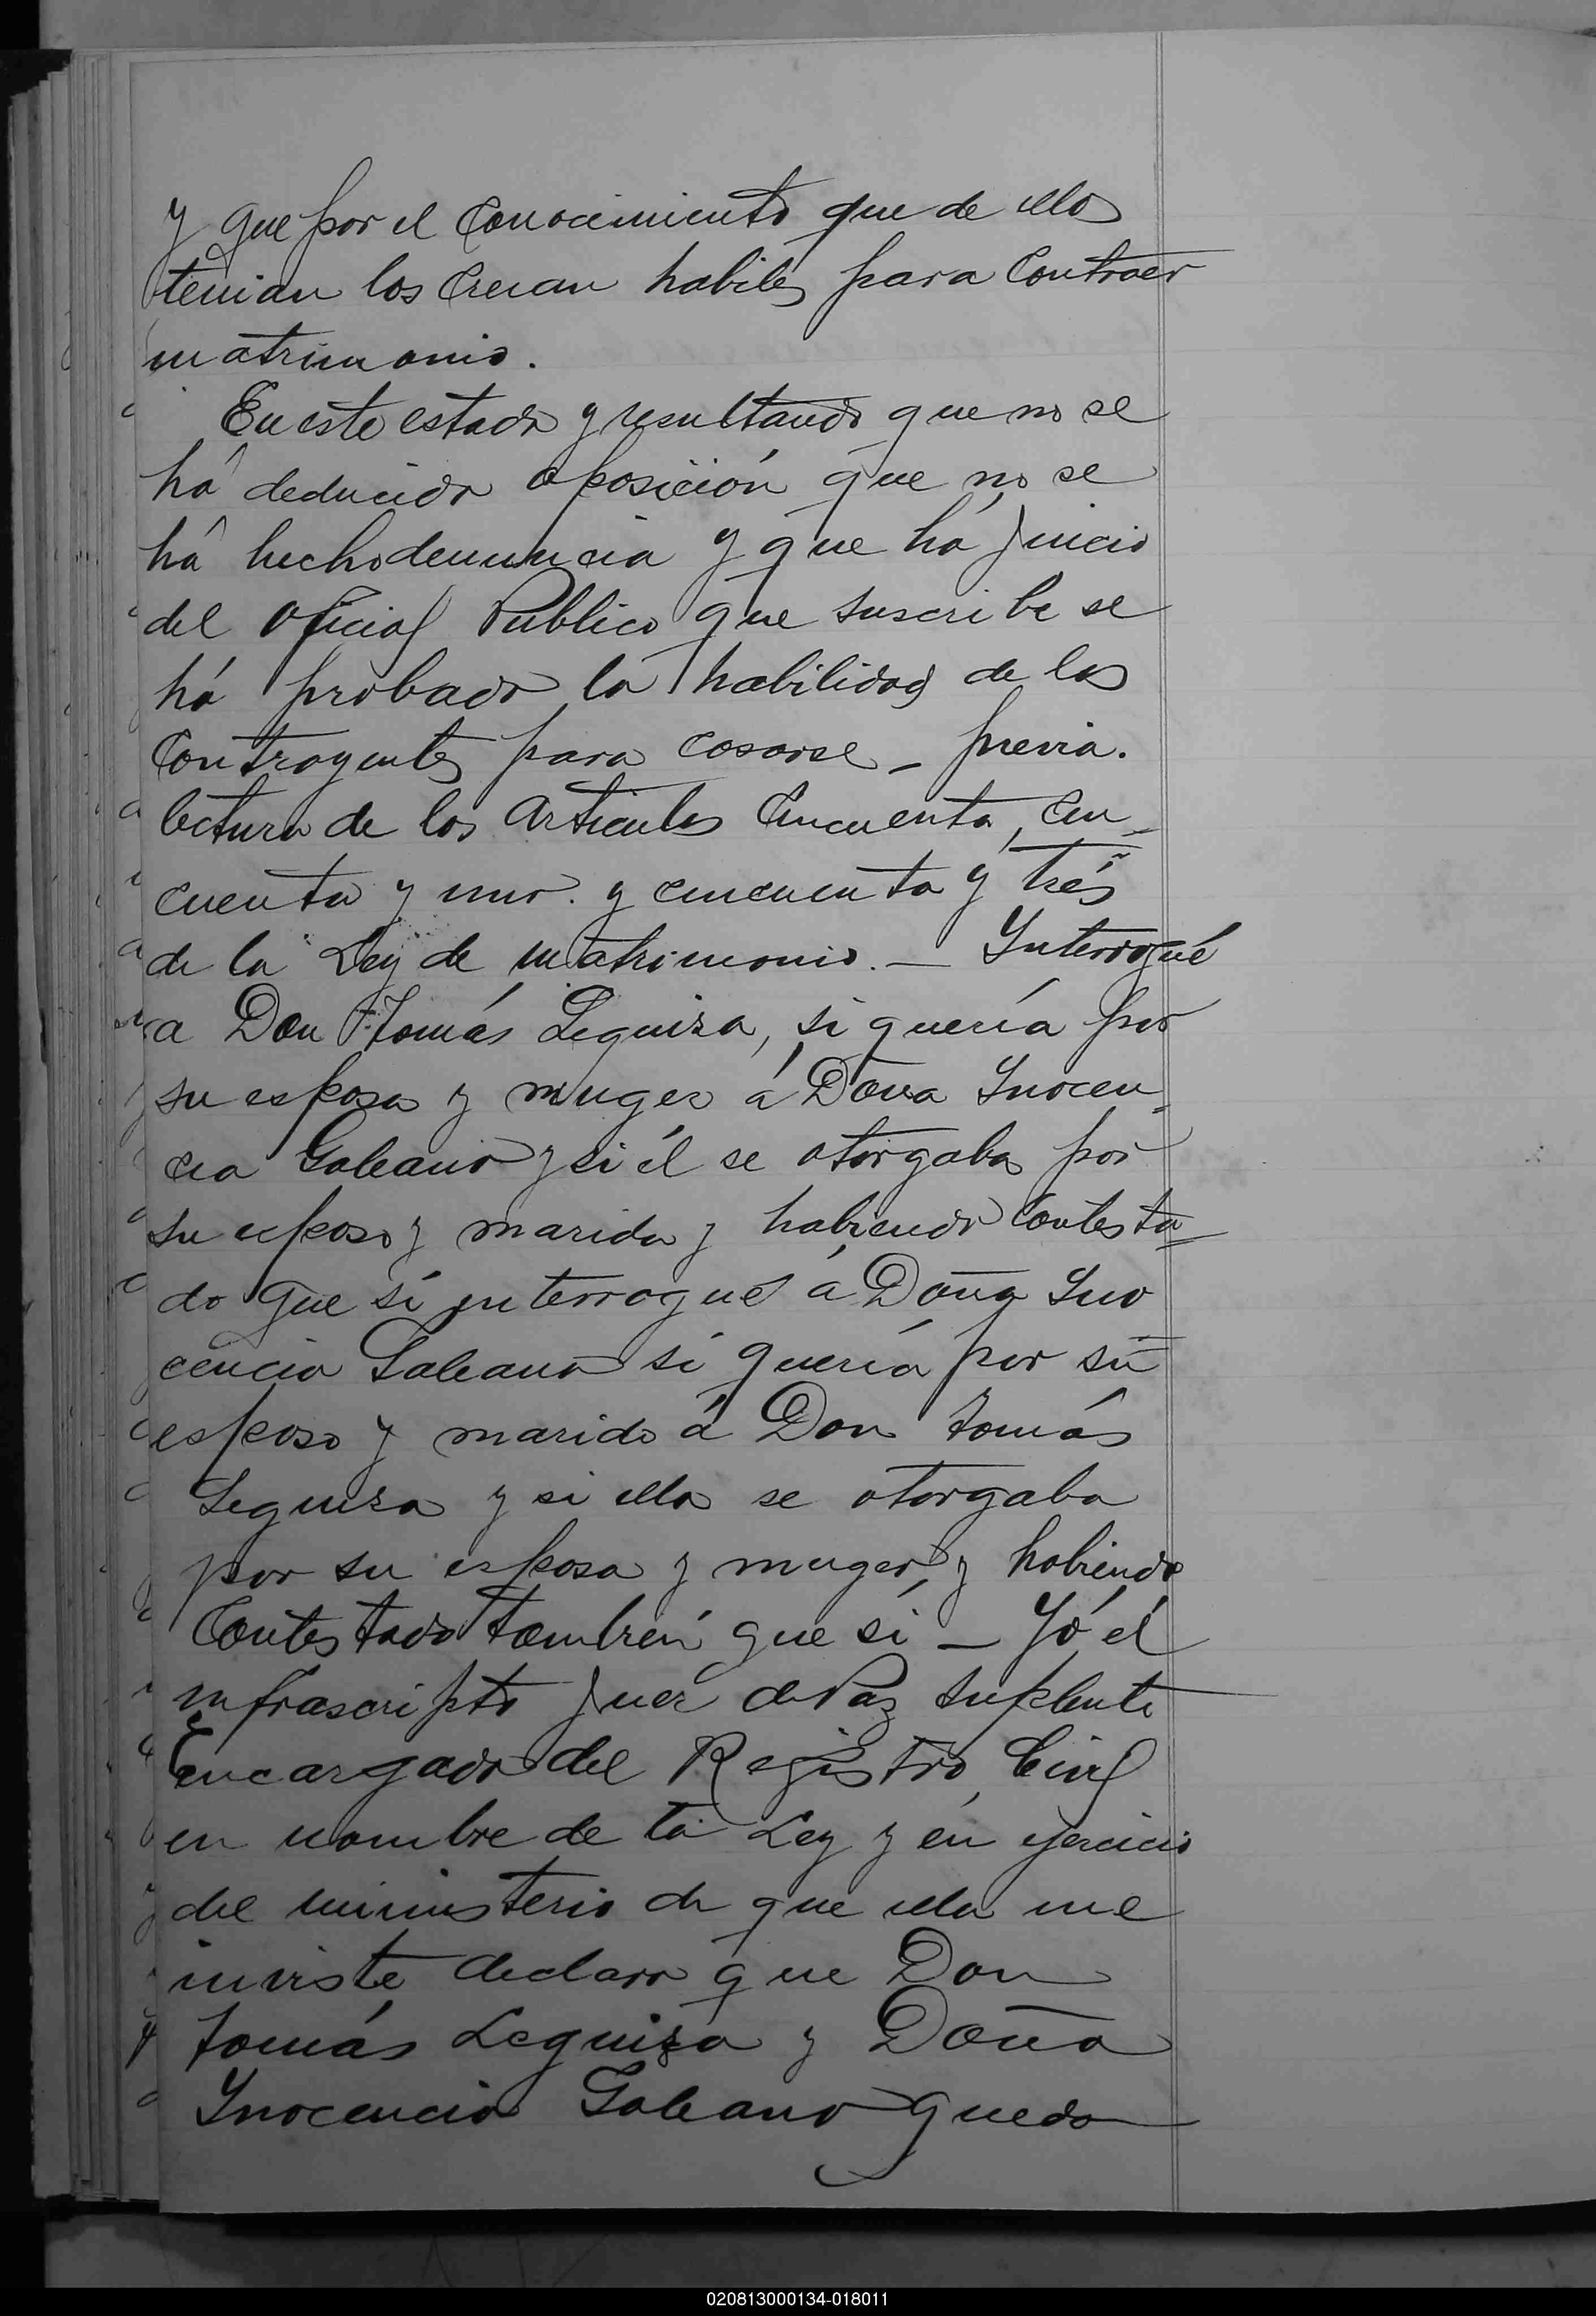 y que por el conocimiento que de ellos
tenian los creian habiles para contraer
matrimonio.
En este estado y resultando que no se
há deducido oposición que no se
há hecho denuncia y que há juicio
del Oficial Publico que suscribe se
há probado la habilidad de los
Contrayentes para casarse _ previa.
lectura de los articulos Cincuenta, cin_
cuenta y uno. y cincuenta y trés
de la Ley de matrimonio. _ Interrogué
a Don Tomás Leguiza, si quería por
su esposa y muger á Doña Inocen_
cia Galeano y si él se otorgaba por
su esposo y marido y habiendo contesta=
do que sí interrogué á Doña Ino
cencia Galeano si quería por su
esposo y marido á Don Tomás
Leguiza y si ella se otorgaba
por su esposa y muger, y habiendo
Contestado tambien que sí _ Yó el
infrascripto Juez de Paz suplente
Encargado del Registro Civil
en nombre de la Ley y en ejercicio
del ministerio de que ella me
inviste declaro que Don
Tomás Leguiza y Doña
Inocencia Galeano queda
020813000134-018011